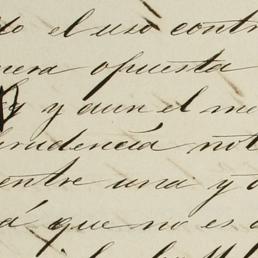 do el uso contr
nera opuesta
y y aun el me
rudencia not
entre una y o
á que no es